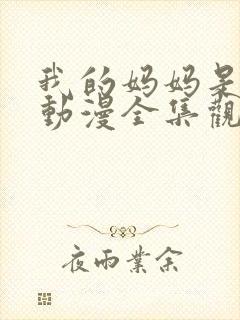 我的妈妈是
動漫全集觀
夜雨業余